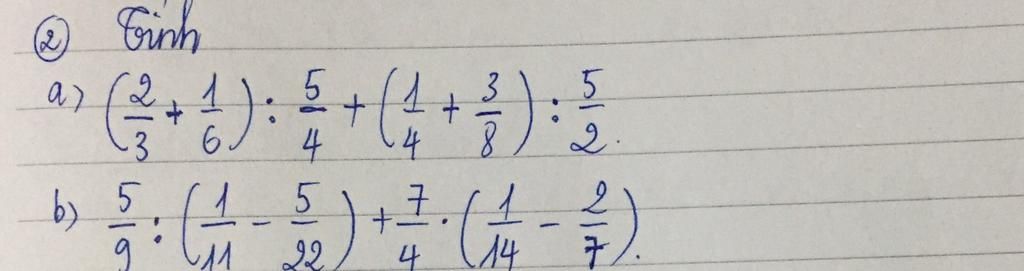 ② Tính
a) (2/3 + 1/6) : 5/4 + (1/4 + 3/8) : 5/2.
b) 5/9 : (1/11 - 5/22) + 7/4 . (1/14 - 2/7).